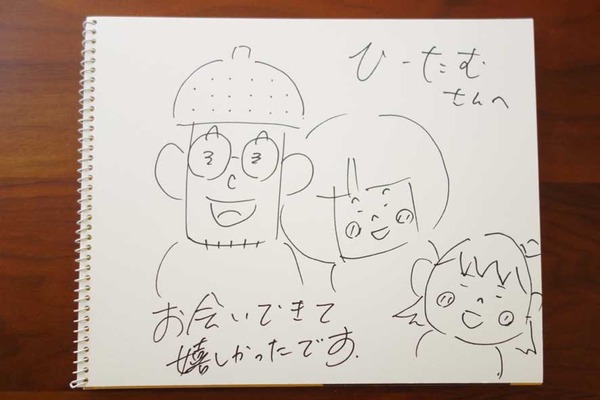 ひーたむ
さんへ
お会いできて
嬉しかったです.